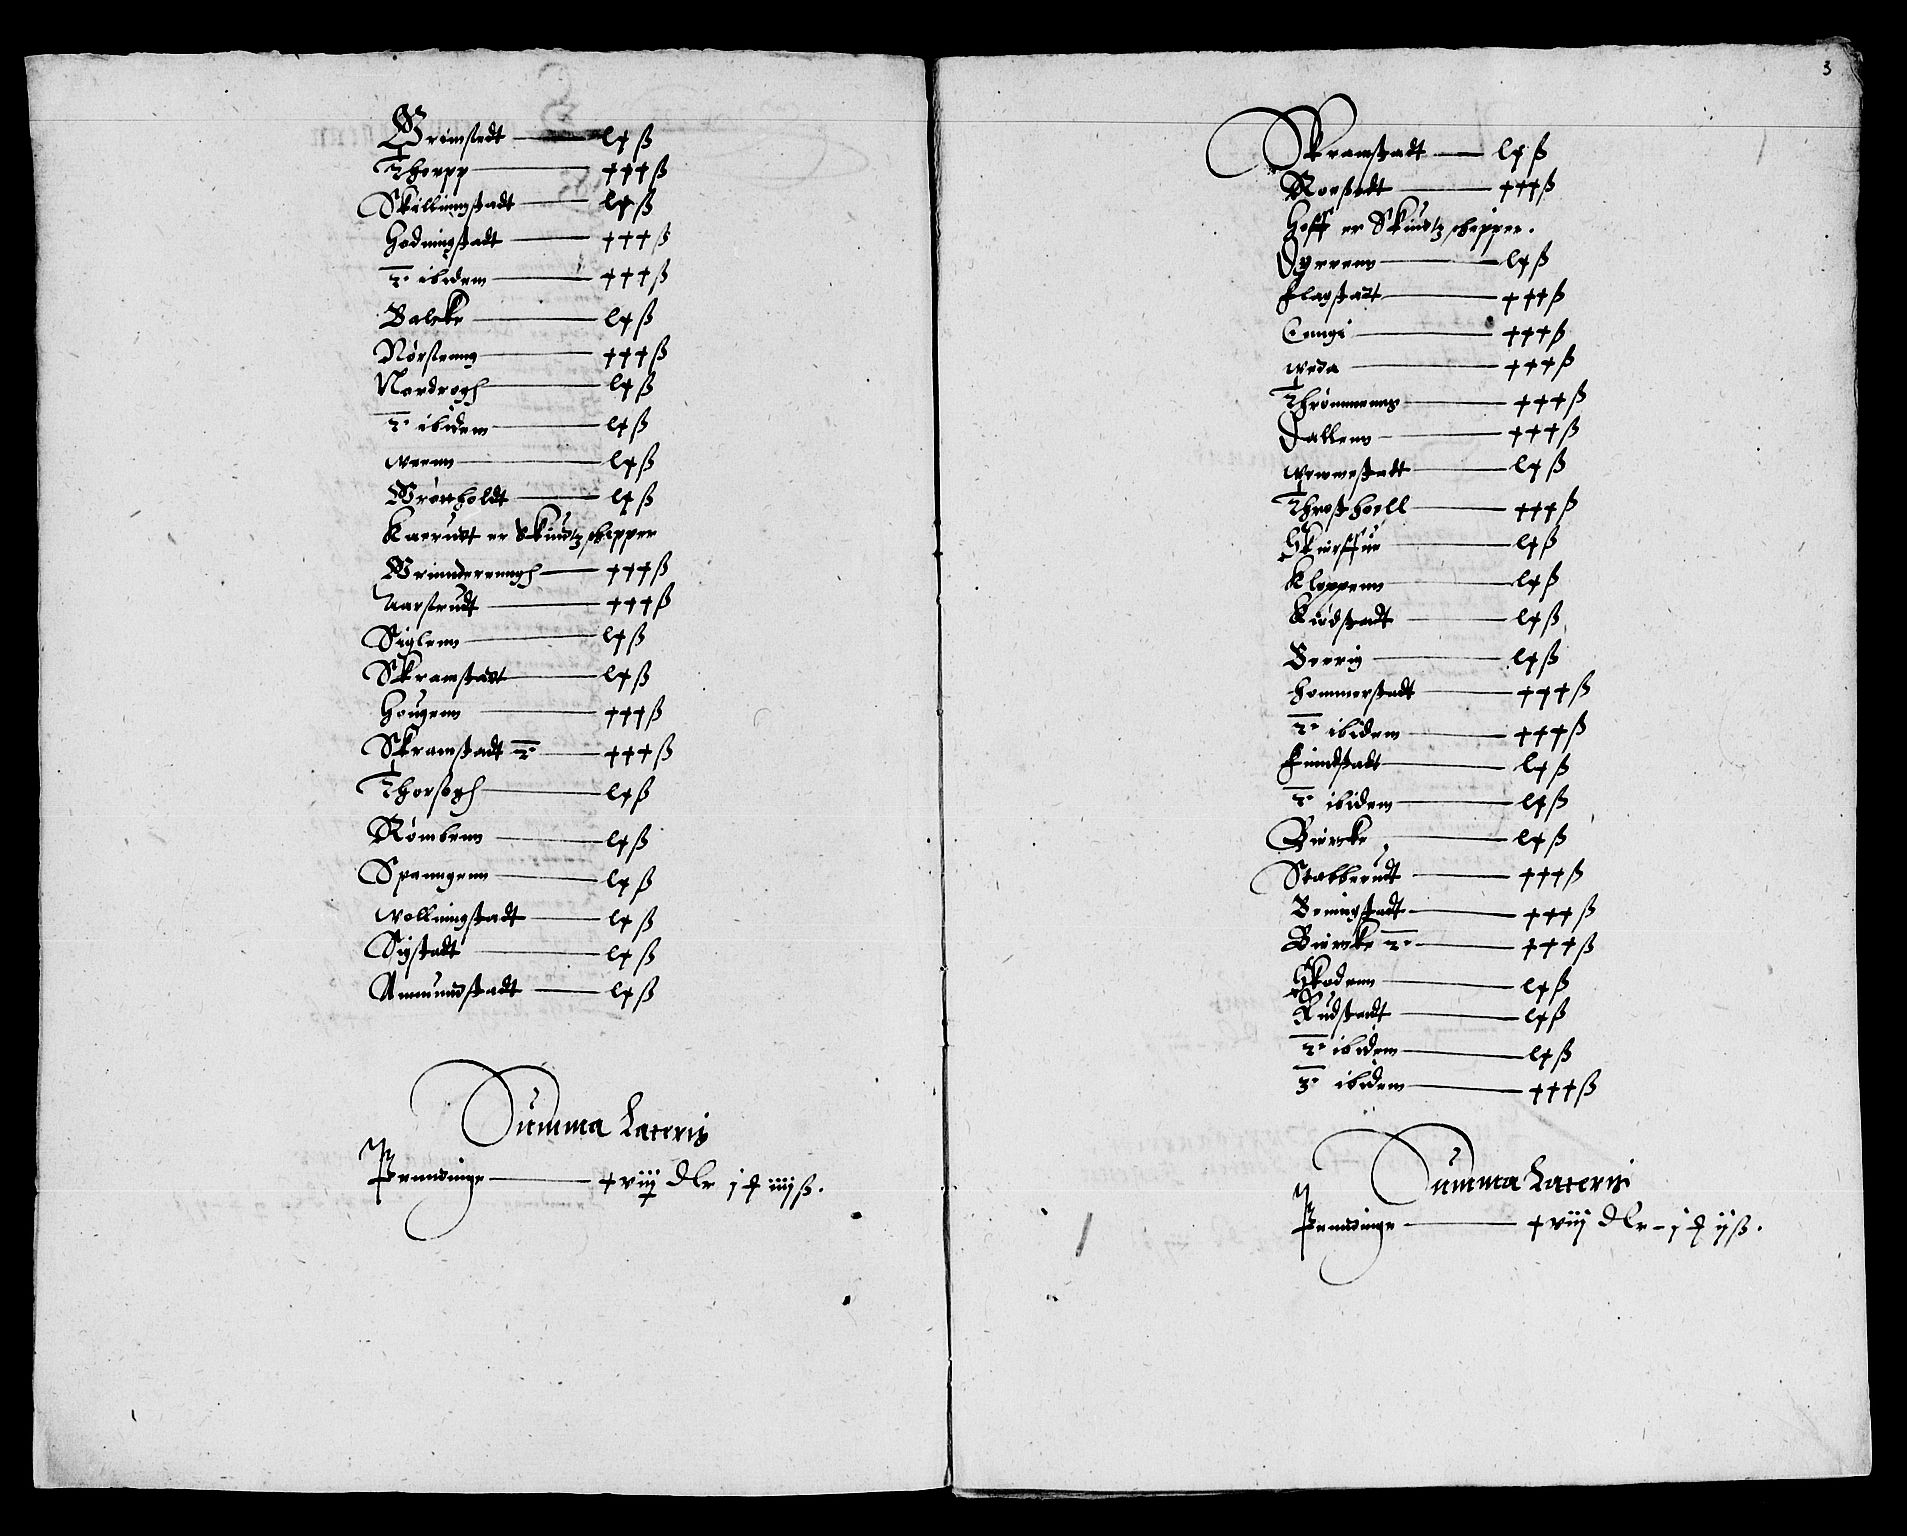 Grimstedt — lx ß
Thorpp — xxx ß
Skillingstadt — lx ß
Hodningstadt — xxx ß
2. ibidem — xxx ß
Balcke — lx ß
Nørsteng — xxx ß
Nordrogh — lx ß
2. ibidem — lx ß
Veenn — lx ß
Grønholdt — lx ß
Kaerudt er Skiudtz schipper
Grimderenngh — xxx ß
Aarsrudt — xxx ß
Siglenn — lx ß
Skramstadt — lx ß
Hougenn — xxx ß
Skramstadt 2. — xxx ß
Thorsogh — lx ß
Rømbenn — lx ß
Spanngenn — lx ß
Vollningstadt — lx ß
Sigstadt — lx ß
Amundstadt — lx ß
Summa Lateris
Penndinge — xviij Dlr j ꝗ iiij ß.
3
Skramstadt — lx ß
Rorstedt — xxx ß
Hoff er Skiudtz schipper.
Dyrenn — lx ß
Flagstadt — xxx ß
Eengi — xxx ß
Veda — xxx ß
Thrømmenns — xxx ß
Dallenn — xxx ß
Vennestadt — lx ß
Throshoell — xxx ß
lx ß
Kloppenn — lx ß
Kiødstadt — lx ß
Berrig — lx ß
Hommerstadt — xxx ß
2. ibidem — xxx ß
Finndstadt — lx ß
2. ibidem — lx ß
Biercke — lx ß
Stabberudt — xxx ß
Beningstadt — xxx ß
Biercke 2. — xxx ß
Skodenn — lx ß
Rudstadt — lx ß
2. ibidem — lx ß
3. ibidem — xxx ß
Summa Lateris
Penndinge — xviij Dlr – j ꝗ ij ß.